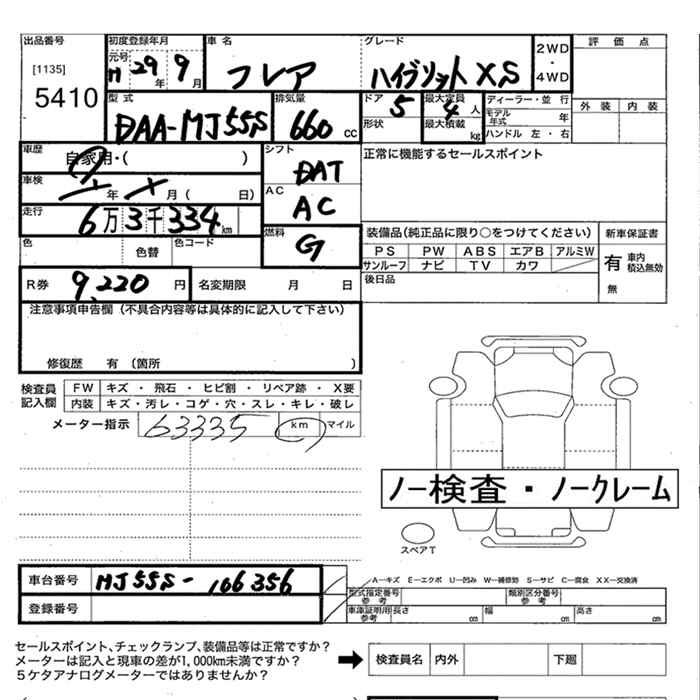 出品番号 初度登録年月 車名 グレード 2WD・4WD 評価点
[1135] 5410 元号 H 29年 9月 フレア ハイブリット XS
型式 排気量 ドア 5 最大定員 4人 ディーラー・並行 外装 内装
DAA-MJ55S 660cc 形状 最大積載 kg モデル年式 年 ハンドル 左・右
車歴 自家用・( ) シフト DAT 正常に機能するセールスポイント
車検 年 月 ( 日) AC AC
走行 6万3千334km
色 色替 色コード 燃料 G 装備品(純正品に限り○をつけてください) 新車保証書
PS PW ABS エアB アルミW 有 車内積込無効
サンルーフ ナビ TV カワ
R券 9,220円 名変期限 月 日 後日品 無
注意事項申告欄(不具合内容等は具体的に記入して下さい)
修復歴 有(箇所 )
検査員記入欄 FW キズ・飛石・ヒビ割・リペア跡・X要
内装 キズ・汚レ・コゲ・穴・スレ・キレ・破レ
メーター指示 63335 km マイル
ノー検査・ノークレーム
スペアT
車台番号 MJ55S-106356 A―キズ E―エクボ U―凹み W―補修跡 S―サビ C―腐食 XX―交換済
型式指定番号 参考 類別区分番号 参考
登録番号 車庫証明用 参考 長さ cm 幅 cm 高さ cm
セールスポイント、チェックランプ、装備品等は正常ですか?
メーターは記入と現車の差が1,000km未満ですか?
5ケタアナログメーターではありませんか?
検査員名 内外 下廻